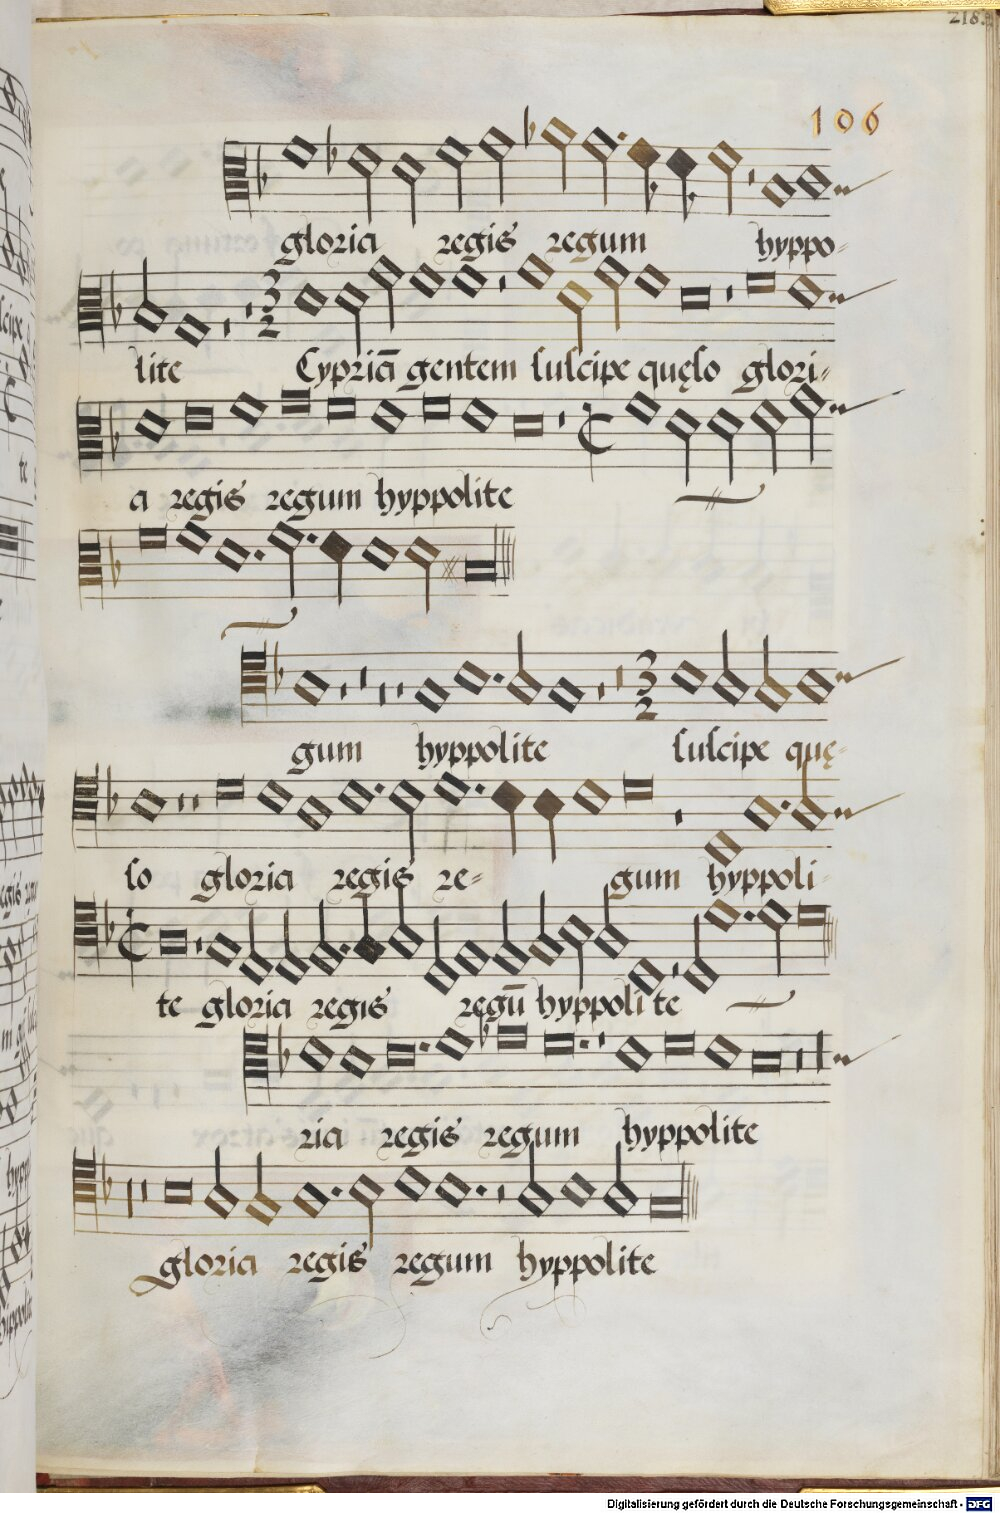 218.
106
gloria regis regum hyppo-
lite Cypriā gentem suscipe quęso glori-
a regis regum hyppolite
gum hyppolite suscipe quę-
so gloria regis re- gum hyppoli-
te gloria regis regū hyppolite
ria regis regum hyppolite
gloria regis regum hyppolite
Digitalisierung gefördert durch die Deutsche Forschungsgemeinschaft - DFG